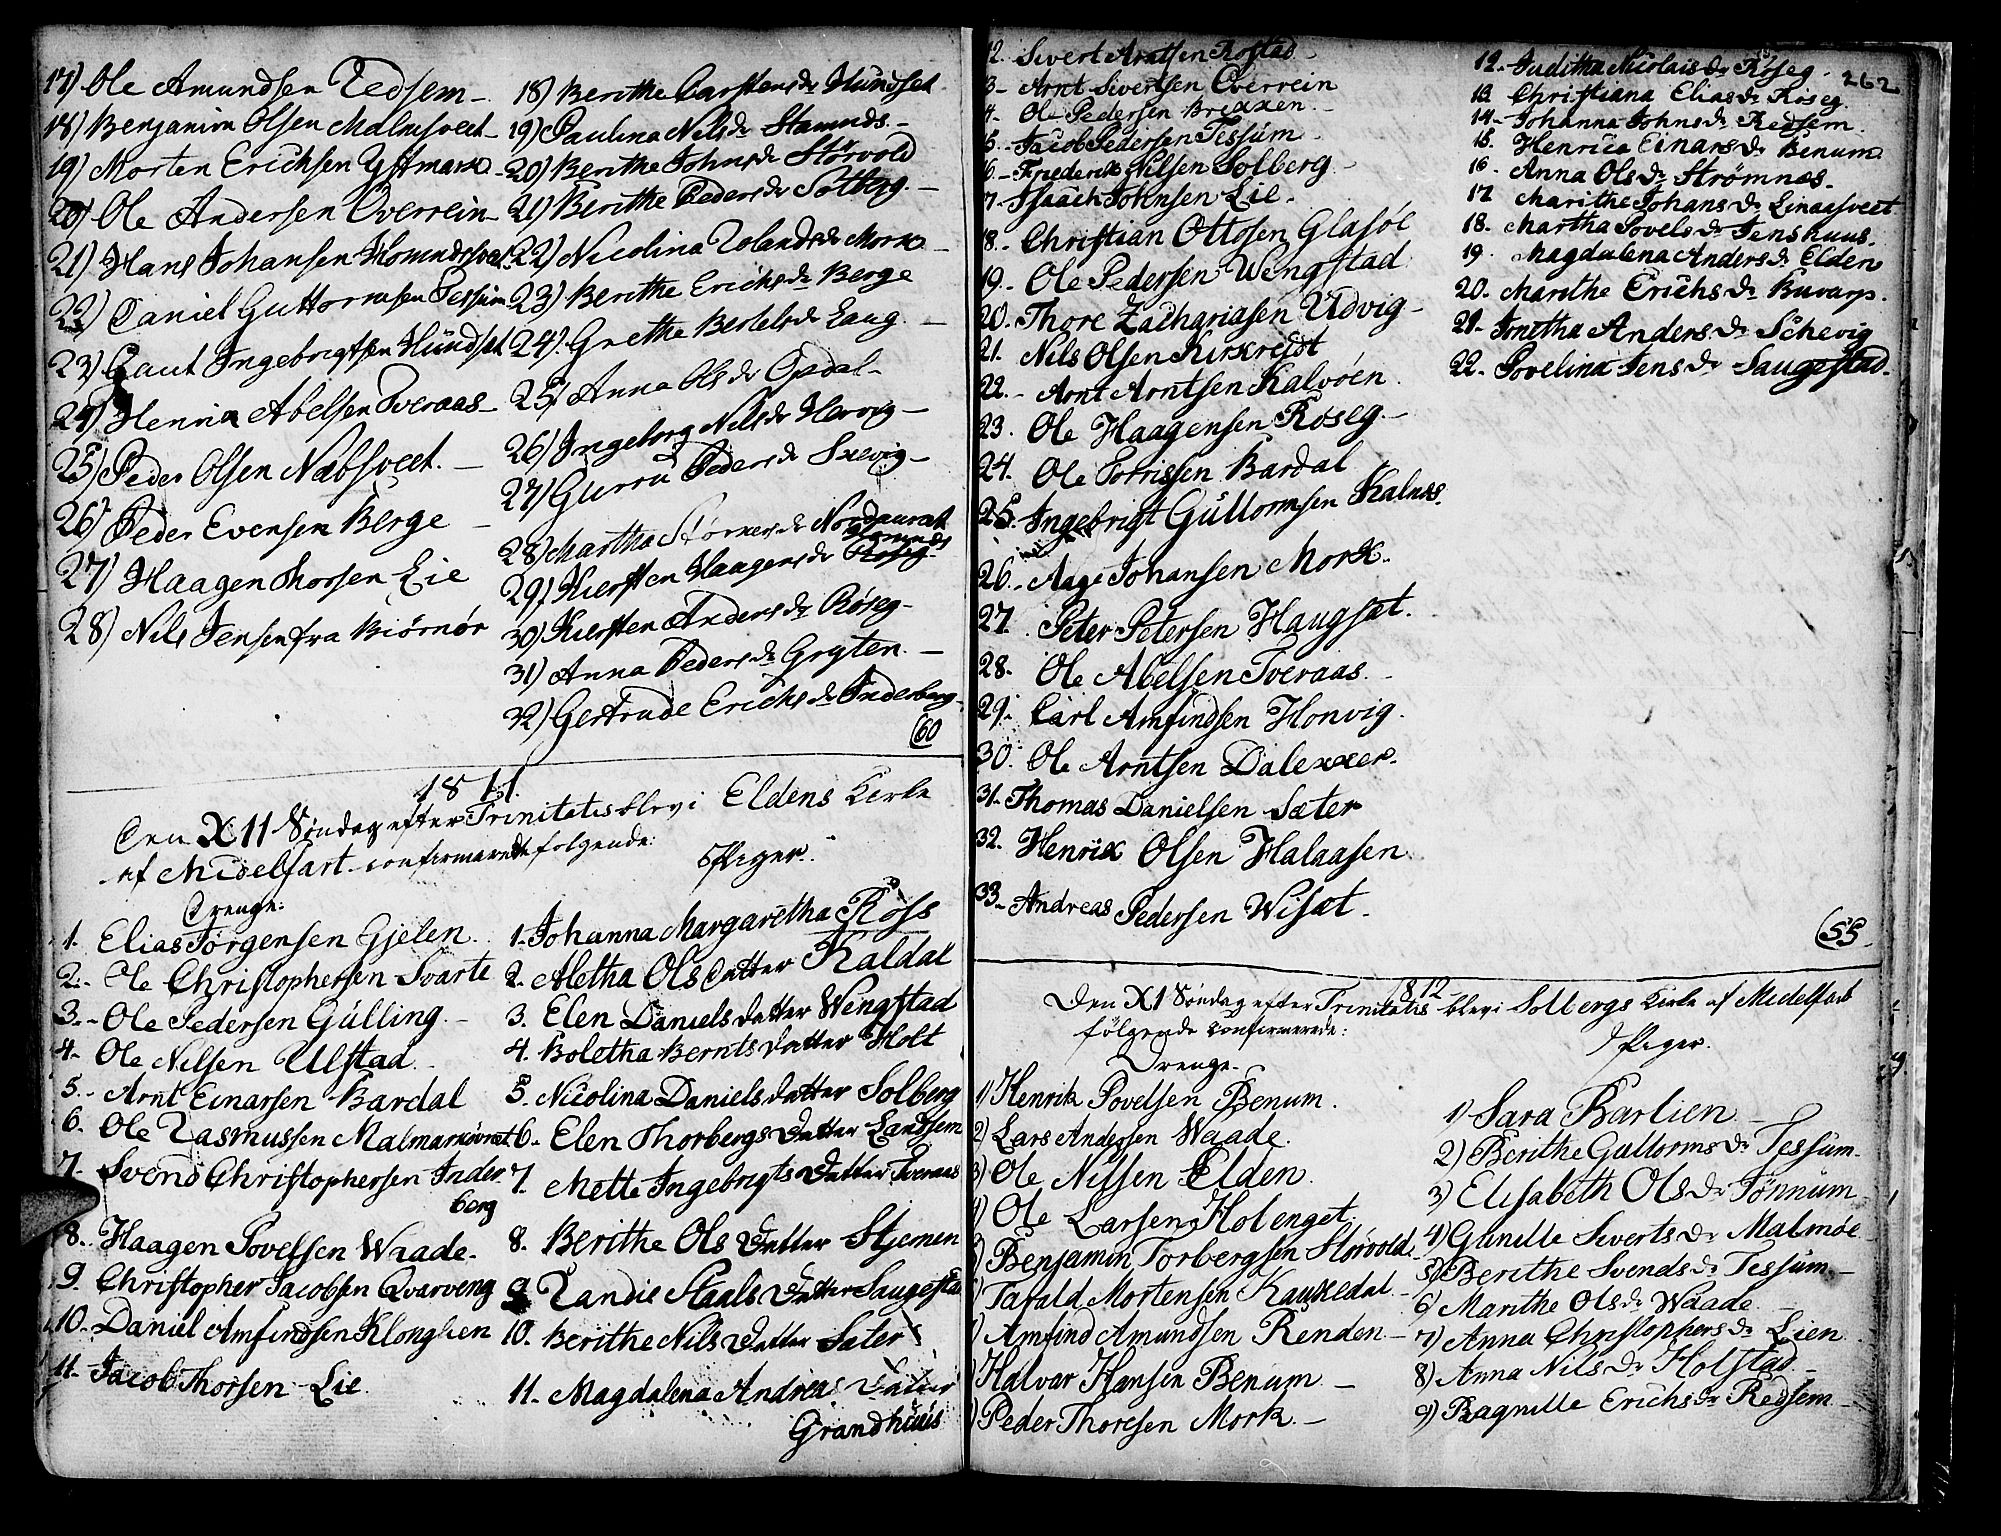 17) Ole Amundsen Redsem
18) Benjamin Olsen Malmsveet
19) Morten Erichsen Ystmark
20) Ole Andersen Overrein
21) Hans Johansen
22) Daniel Guttormsen Tessüm
23) Gaut Ingebrigtsen Hündset
24) Henrik Abelsen Tveraas
25) Peder Olsen Næbsveet.
26) Peder Evensen Berge
27) Haagen Thorsen Lie
28) Nils Jensen fra Biørnør
18) Berithe Carstensdr Hündset
19) Paulina Nilsdr Stamnds.
20) Berithe Johnsdr Størvold
21) Berithe Pedersdr Solberg.
22) Nicolina Rolandsdr Mork
23) Berithe Erichsdr Berge
24) Grethe Bertelsdr Laug.
25) Anna Olsdr Opdal
26) Ingeborg Nilsdr Hervig
27) Gurru Pedersdr Sxevig
28) Martha Størkersdr
29) Kiersten Haagensdr Røseg
30) Kiersten Andersdr Røseg
31) Anna Pedersdr Gryten.
32) Gertrude Erichsdr Inderberg
60
1811.
Den XII Søndag efter Trinitatis blev i Eldens Kirke
af Midelfart confirmerede følgende:
Drenge.
1. Elias Jørgensen Gjelen.
2. Ole Christophersen Svarte
3. Ole Pedersen Gülling.
4. Ole Nilsen Ulstad
5. Arnt Einarsen Bardal
6. Ole Rasmussen
7. Svend Christophersen Inder
berg
8. Haagen Povelsen Waade.
9. Christopher Jacobsen Qvarveng
10. Daniel Amfindsen Klonglien
11. Jacob Thorsen Lie
Piger.
1. Johanna Margaretha Röss
2. Aletha Ols Datter Kaldal
3. Elen Daniels Datter Wengstad
4. Boletha Bernts Datter Holt
5. Nicolina Daniels Datter Solberg
6. Elen Thorbergs Datter Landsem
7. Mette Ingebrigts Datter Tveraas
8. Berithe Ols Datter Stjernen
9. Randie Staals Datter Saugestad
10. Berithe Nils Datter Sæter
11. Magdalena Andreas Datter
Grandhüüs
12. Sivert Arntsen Rostad
13. Arnt Sivertsen Overrein
14. Ole Pedersen Brexxen.
15. Jacob Pedersen Tessüm
16. Friederik Nilsen Solberg
17. Isaach Johnsen Lie.
18. Christian Ottosen Glasöe
19. Ole Pedersen Wengstad
20. Thore Zachariasen Udvig
21. Nils Olsen
22. Arnt Arntsen Kalvöen
23. Ole Haagensen Röseg.
24. Ole Torrissen Bardal
25. Ingebrigt Güttormsen Kalnæs.
26. Aage Johansen Mork.
27. Peter Petersen Haugsæt.
28. Ole Abelsen Tveraas.
29. Carl Amfindsen Honvig.
30. Ole Arntsen Dalexxer.
31. Thomas Danielsen Sæter
32. Henrix Olsen Halaasen
33. Andreas Pedersen Wisæt.
262
12. Juditha Nicolaisdr Røseg.
13. Christiana Eliasdr Røseg.
14. Johanna Johnsdr Redsem.
15. Henrica Einarsdr Benum
16. Anna Olsdr Strømnæs.
17. Marithe Johansdr
18. Martha Povelsdr Jenshuus.
19. Magdalena Andersdr Elden
20. Marithe Erichsdr Buvarp.
21. Andersdr Schevig
22. Povelina Jensdr Saugestad.
55
1812
Den XI Søndag efter Trinitatis blev i Solbergs Kirke af Midelfart
følgende Confirmerede:
Drenge.
1) Henrik Povelsen Benum.
2) Lars Andersen Waade.
3) Ole Nilsen Elden.
4) Ole Larsen Holenget
5) Benjamin Torbergsen Størvold
6) Tarald Mortensen Kauxedal.
7) Amfind Amundsen Renden
8) Halvar Hansen Benum
9) Peder Thoresen Mork.
Piger.
1) Sara Barlien
2) Berithe Guttormsdr Tessüm.
3) Elisabeth Olsdr Tønnüm
4) Gunille Sivertsdr Malmöe
5) Berithe Svendsdr Tessüm
6) Marithe Olsdr Waade
7) Anna Christophersdr Lien
8) Anna Nilsdr Holstad
9) Ragnille Erichsdr Redsem